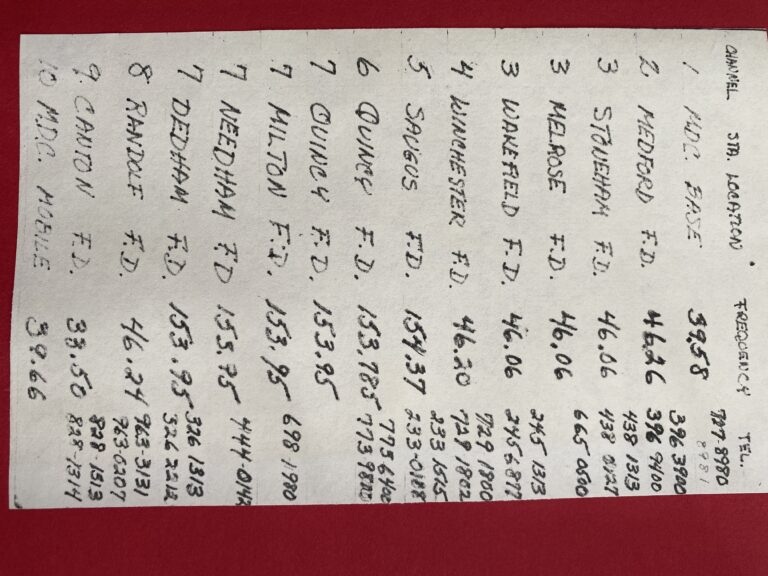 CHANNEL STA. LOCATION FREQUENCY TEL.
727-8980
8981
1 M.D.C. BASE 39.58 396 3800
2 MEDFORD F.D. 46.26 396 9400
438 1313
3 STONEHAM F.D. 46.06 438 0127
3 MELROSE F.D. 46.06 665-0500
245 1313
3 WAKEFIELD F.D. 46.06 245 6877
729 1800
4 WINCHESTER F.D. 46.20 729 1802
233 1575
5 SAUGUS F.D. 154.37 233-0188
773 6400
6 QUINCY F.D. 153.785 773 9800
7 QUINCY F.D. 153.95
7 MILTON F.D. 153.95 698-1980
7 NEEDHAM F.D 153.95 444-0142
326 1313
7 DEDHAM F.D. 153.95 326 2212
963-3131
8 RANDOLF F.D. 46.24 963-0207
828-1313
9 CANTON F.D. 33.50 828-1314
10 M.D.C. MOBILE 39.66